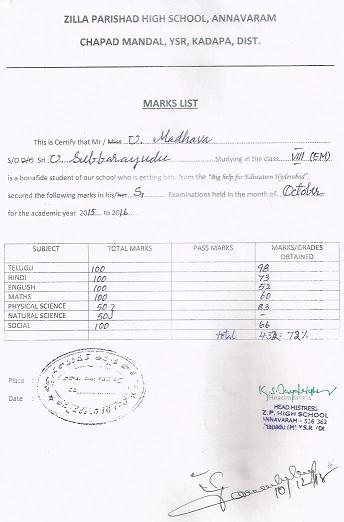 ZILLA PARISHAD HIGH SCHOOL, ANNAVARAM
CHAPAD MANDAL, YSR, KADAPA, DIST.
MARKS LIST
This is Certify that Mr / Miss U. Madhava
S/O D/O Sri U. Subbarayudu Studying in the class VIII (EM)
is a bonafide student of our school who is getting help from the "Big help for Education Hyderabad"
secured the following marks in his/her S1 Examinations held in the month of October
for the academic year 2015 to 2016
SUBJECT TOTAL MARKS PASS MARKS MARKS/GRADES OBTAINED
TELUGU 100 98
HINDI 100 73
ENGLISH 100 52
MATHS 100 60
PHYSICAL SCIENCE 50 83
NATURAL SCIENCE 50 -
SOCIAL 100 66
total 432= 72%
Place :
Date :
Headmistress
HEAD MISTRESS
Z.P. HIGH SCHOOL
ANNAVARAM - 516 362
Chapadu (M) Y.S.R. Dt
10/12/15